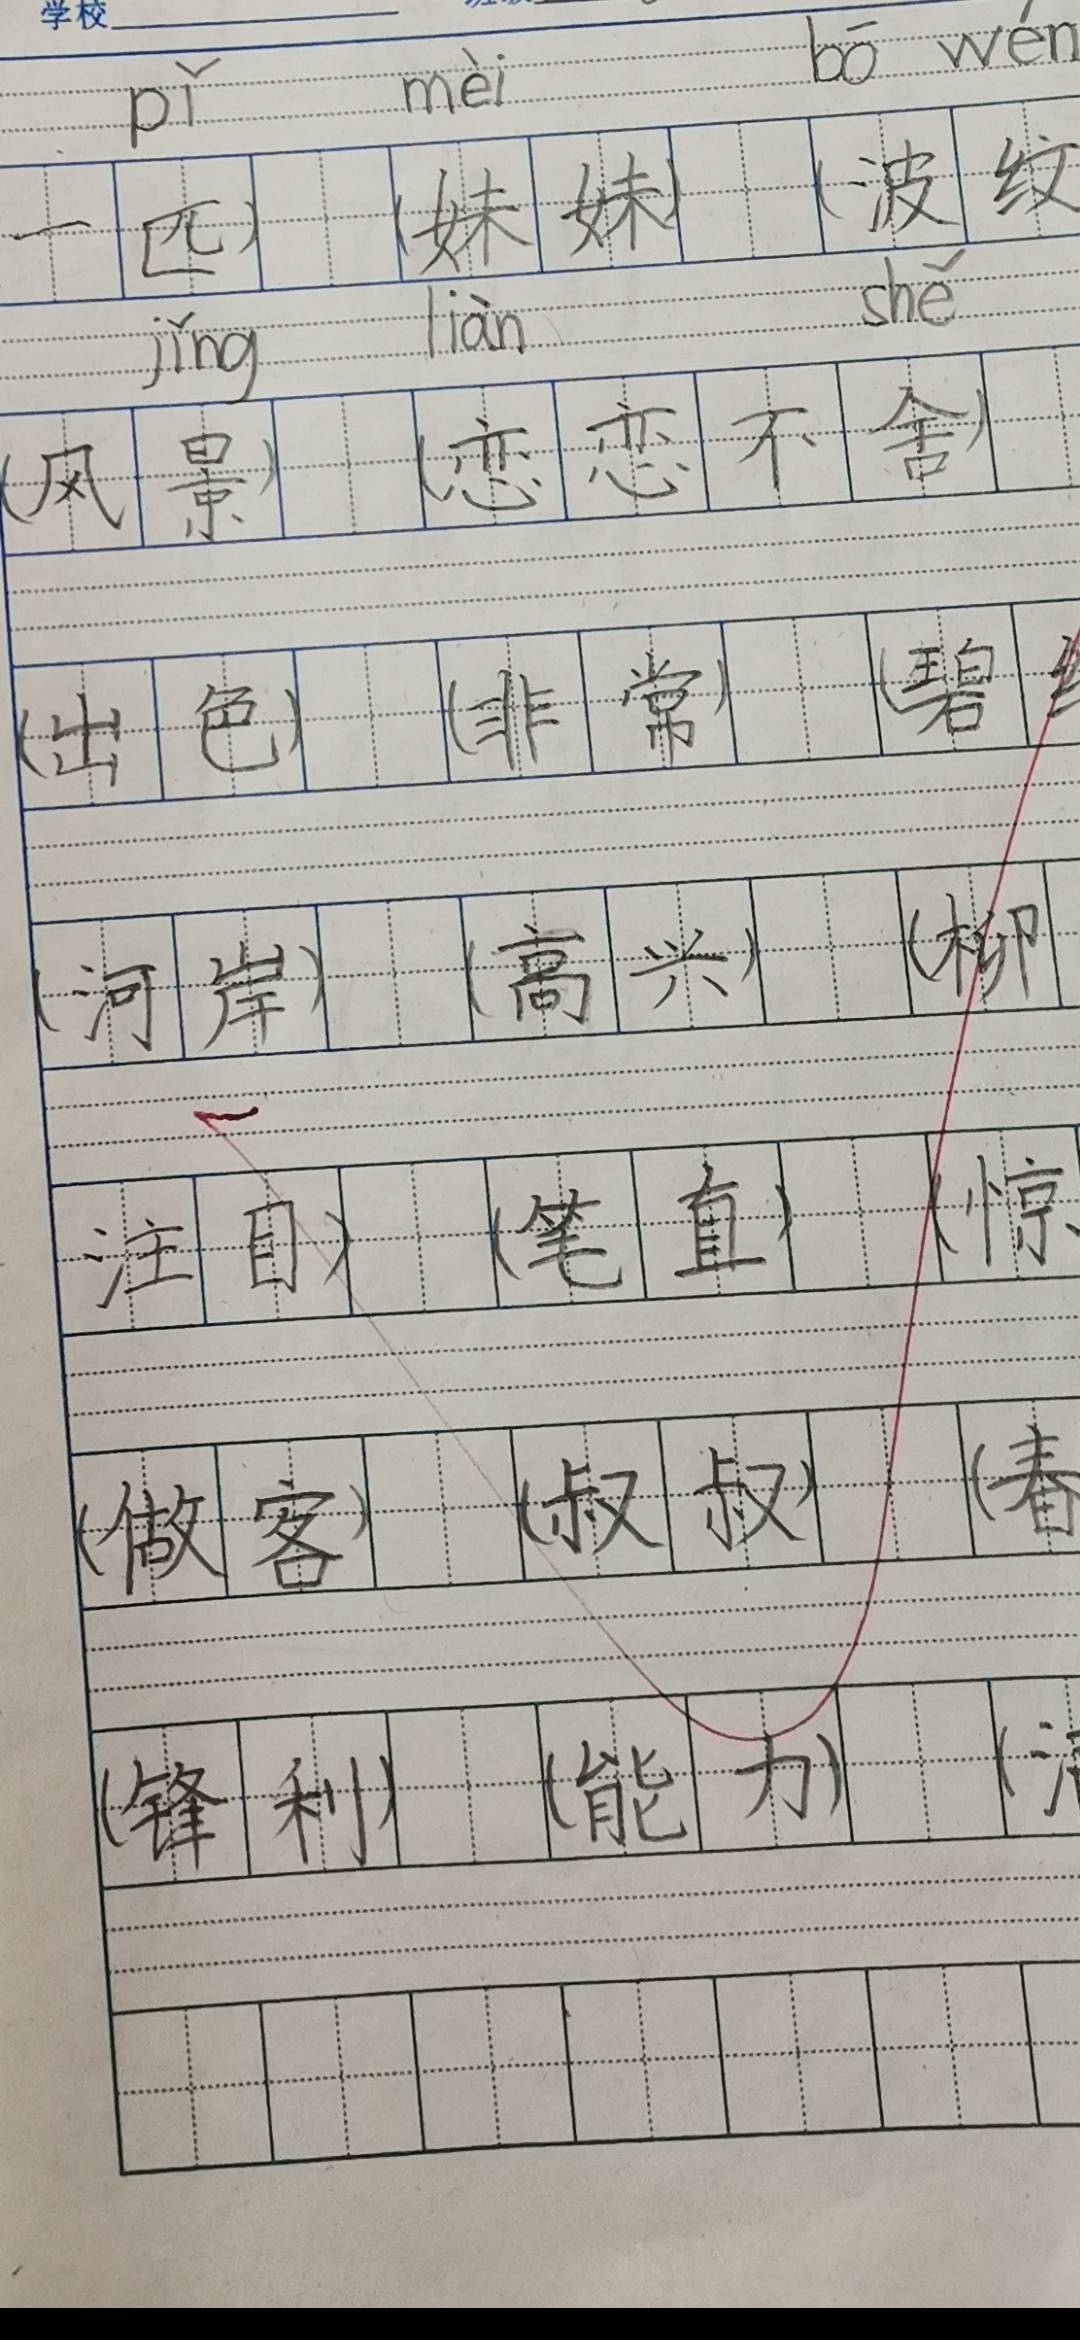 学校
pǐ mèi bō wén
一匹) (妹妹) (波纹
jǐng liàn shě
(风景) (恋恋不舍)
(出色) (非常) (碧
(河岸) (高兴) (柳
注目) (笔直) (惊
(做客) (叔叔) (春
(锋利) (能力) (